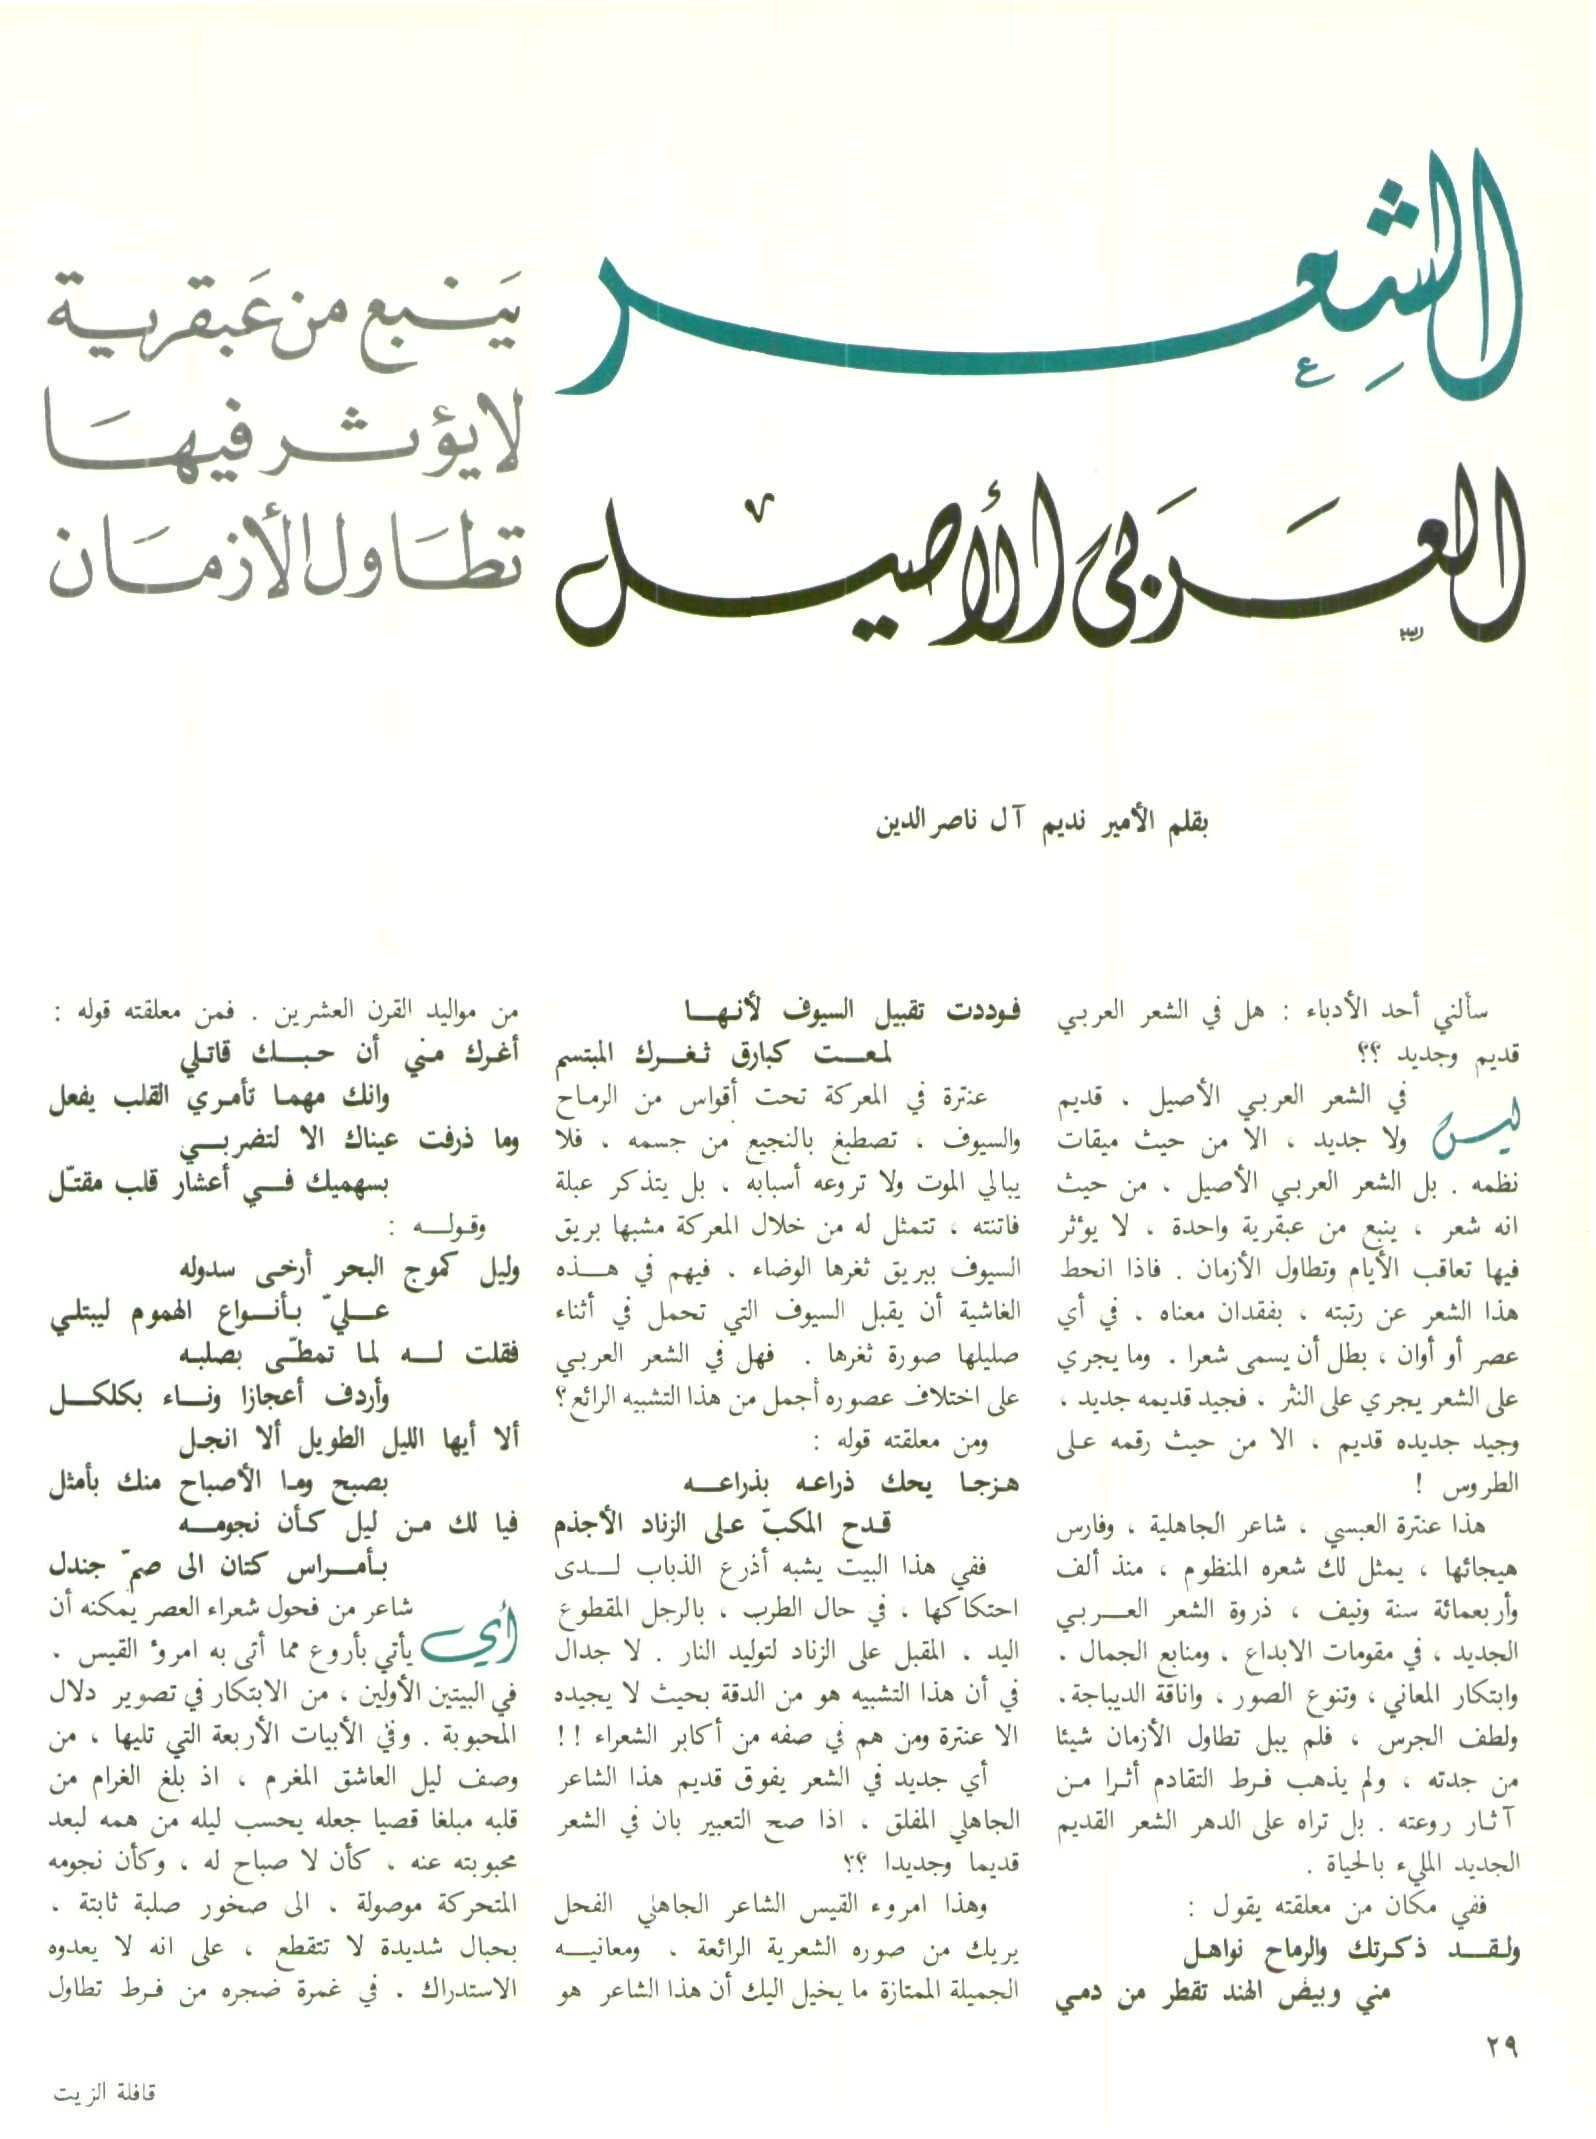 الشِعر
العَرَبي الأصيل
يَنبع من عَبقرية
لا يؤثر فيهَا
تطَاول الأزمَان
بقلم الأمير نديم آل ناصر الدين
سألني أحد الأدباء : هل في الشعر العربي
قديم وجديد ؟؟
ليس في الشعر العربي الأصيل ، قديم
ولا جديد ، الا من حيث ميقات
نظمه . بل الشعر العربي الأصيل ، من حيث
انه شعر ، ينبع من عبقرية واحدة ، لا يؤثر
فيها تعاقب الأيام وتطاول الأزمان . فاذا انحط
هذا الشعر عن رتبته ، بفقدان معناه ، في أي
عصر أو أوان ، بطل أن يسمى شعرا . وما يجري
على الشعر يجري على النثر ، فجيد قديمه جديد ،
وجيد جديده قديم ، الا من حيث رقمه على
الطروس !
هذا عنترة العبسي ، شاعر الجاهلية ، وفارس
هيجائها ، يمثل لك شعره المنظوم ، منذ ألف
وأربعمائة سنة ونيف ، ذروة الشعر العربي
الجديد ، في مقومات الابداع ، ومنابع الجمال .
وابتكار المعاني ، وتنوع الصور ، واناقة الديباجة ،
ولطف الجرس ، فلم يبل تطاول الأزمان شيئا
من جدته ، ولم يذهب فرط التقادم أثرا من
آثار روعته . بل تراه على الدهر الشعر القديم
الجديد المليء بالحياة .
ففي مكان من معلقته يقول :
ولقد ذكرتك والرماح نواهل
مني وبيض الهند تقطر من دمي
فوددت تقبيل السيوف لأنها
لمعت كبارق ثغرك المبتسم
عنترة في المعركة تحت أقواس من الرماح
والسيوف ، تصطبغ بالنجيع من جسمه ، فلا
يبالي الموت ولا تروعه أسبابه ، بل يتذكر عبلة
فاتنته ، تتمثل له من خلال المعركة مشبها بريق
السيوف ببريق ثغرها الوضاء . فيهم في هذه
الغاشية أن يقبل السيوف التي تحمل في أثناء
صليلها صورة ثغرها . فهل في الشعر العربي
على اختلاف عصوره أجمل من هذا التشبيه الرائع ؟
ومن معلقته قوله :
هزجا يحك ذراعه بذراعه
قدح المكبّ على الزناد الأجذم
ففي هذا البيت يشبه أذرع الذباب لدى
احتكاكها ، في حال الطرب ، بالرجل المقطوع
اليد ، المقبل على الزناد لتوليد النار . لا جدال
في أن هذا التشبيه هو من الدقة بحيث لا يجيده
الا عنترة ومن هم في صفه من أكابر الشعراء !!
أي جديد في الشعر يفوق قديم هذا الشاعر
الجاهلي المفلق ، اذا صح التعبير بان في الشعر
قديما وجديدا ؟؟
وهذا امروء القيس الشاعر الجاهلي الفحل
يريك من صوره الشعرية الرائعة ، ومعانيه
الجميلة الممتازة ما يخيل اليك أن هذا الشاعر هو
من مواليد القرن العشرين . فمن معلقته قوله :
أغرك مني أن حبك قاتلي
وانك مهما تأمري القلب يفعل
وما ذرفت عيناك الا لتضربي
بسهميك في أعشار قلب مقتّل
وقوله :
وليل كموج البحر أرخى سدوله
عليّ بأنواع الهموم ليبتلي
فقلت له لما تمطّى بصلبه
وأردف أعجازا وناء بكلكل
ألا أيها الليل الطويل ألا انجل
بصبح وما الأصباح منك بأمثل
فيا لك من ليل كأن نجومه
بأمراس كتان الى صمّ جندل
أي شاعر من فحول شعراء العصر يمكنه أن
يأتي بأروع مما أتى به امرؤ القيس .
في البيتين الأولين ، من الابتكار في تصوير دلال
المحبوبة . وفي الأبيات الأربعة التي تليها ، من
وصف ليل العاشق المغرم ، اذ بلغ الغرام من
قلبه مبلغا قصيا جعله يحسب ليله من همه لبعد
محبوبته عنه ، كأن لا صباح له ، وكأن نجومه
المتحركة موصولة ، الى صخور صلبة ثابتة .
بحبال شديدة لا تتقطع ، على انه لا يعدوه
الاستدراك . في غمرة ضجره من فرط تطاول
٢٩
قافلة الزيت